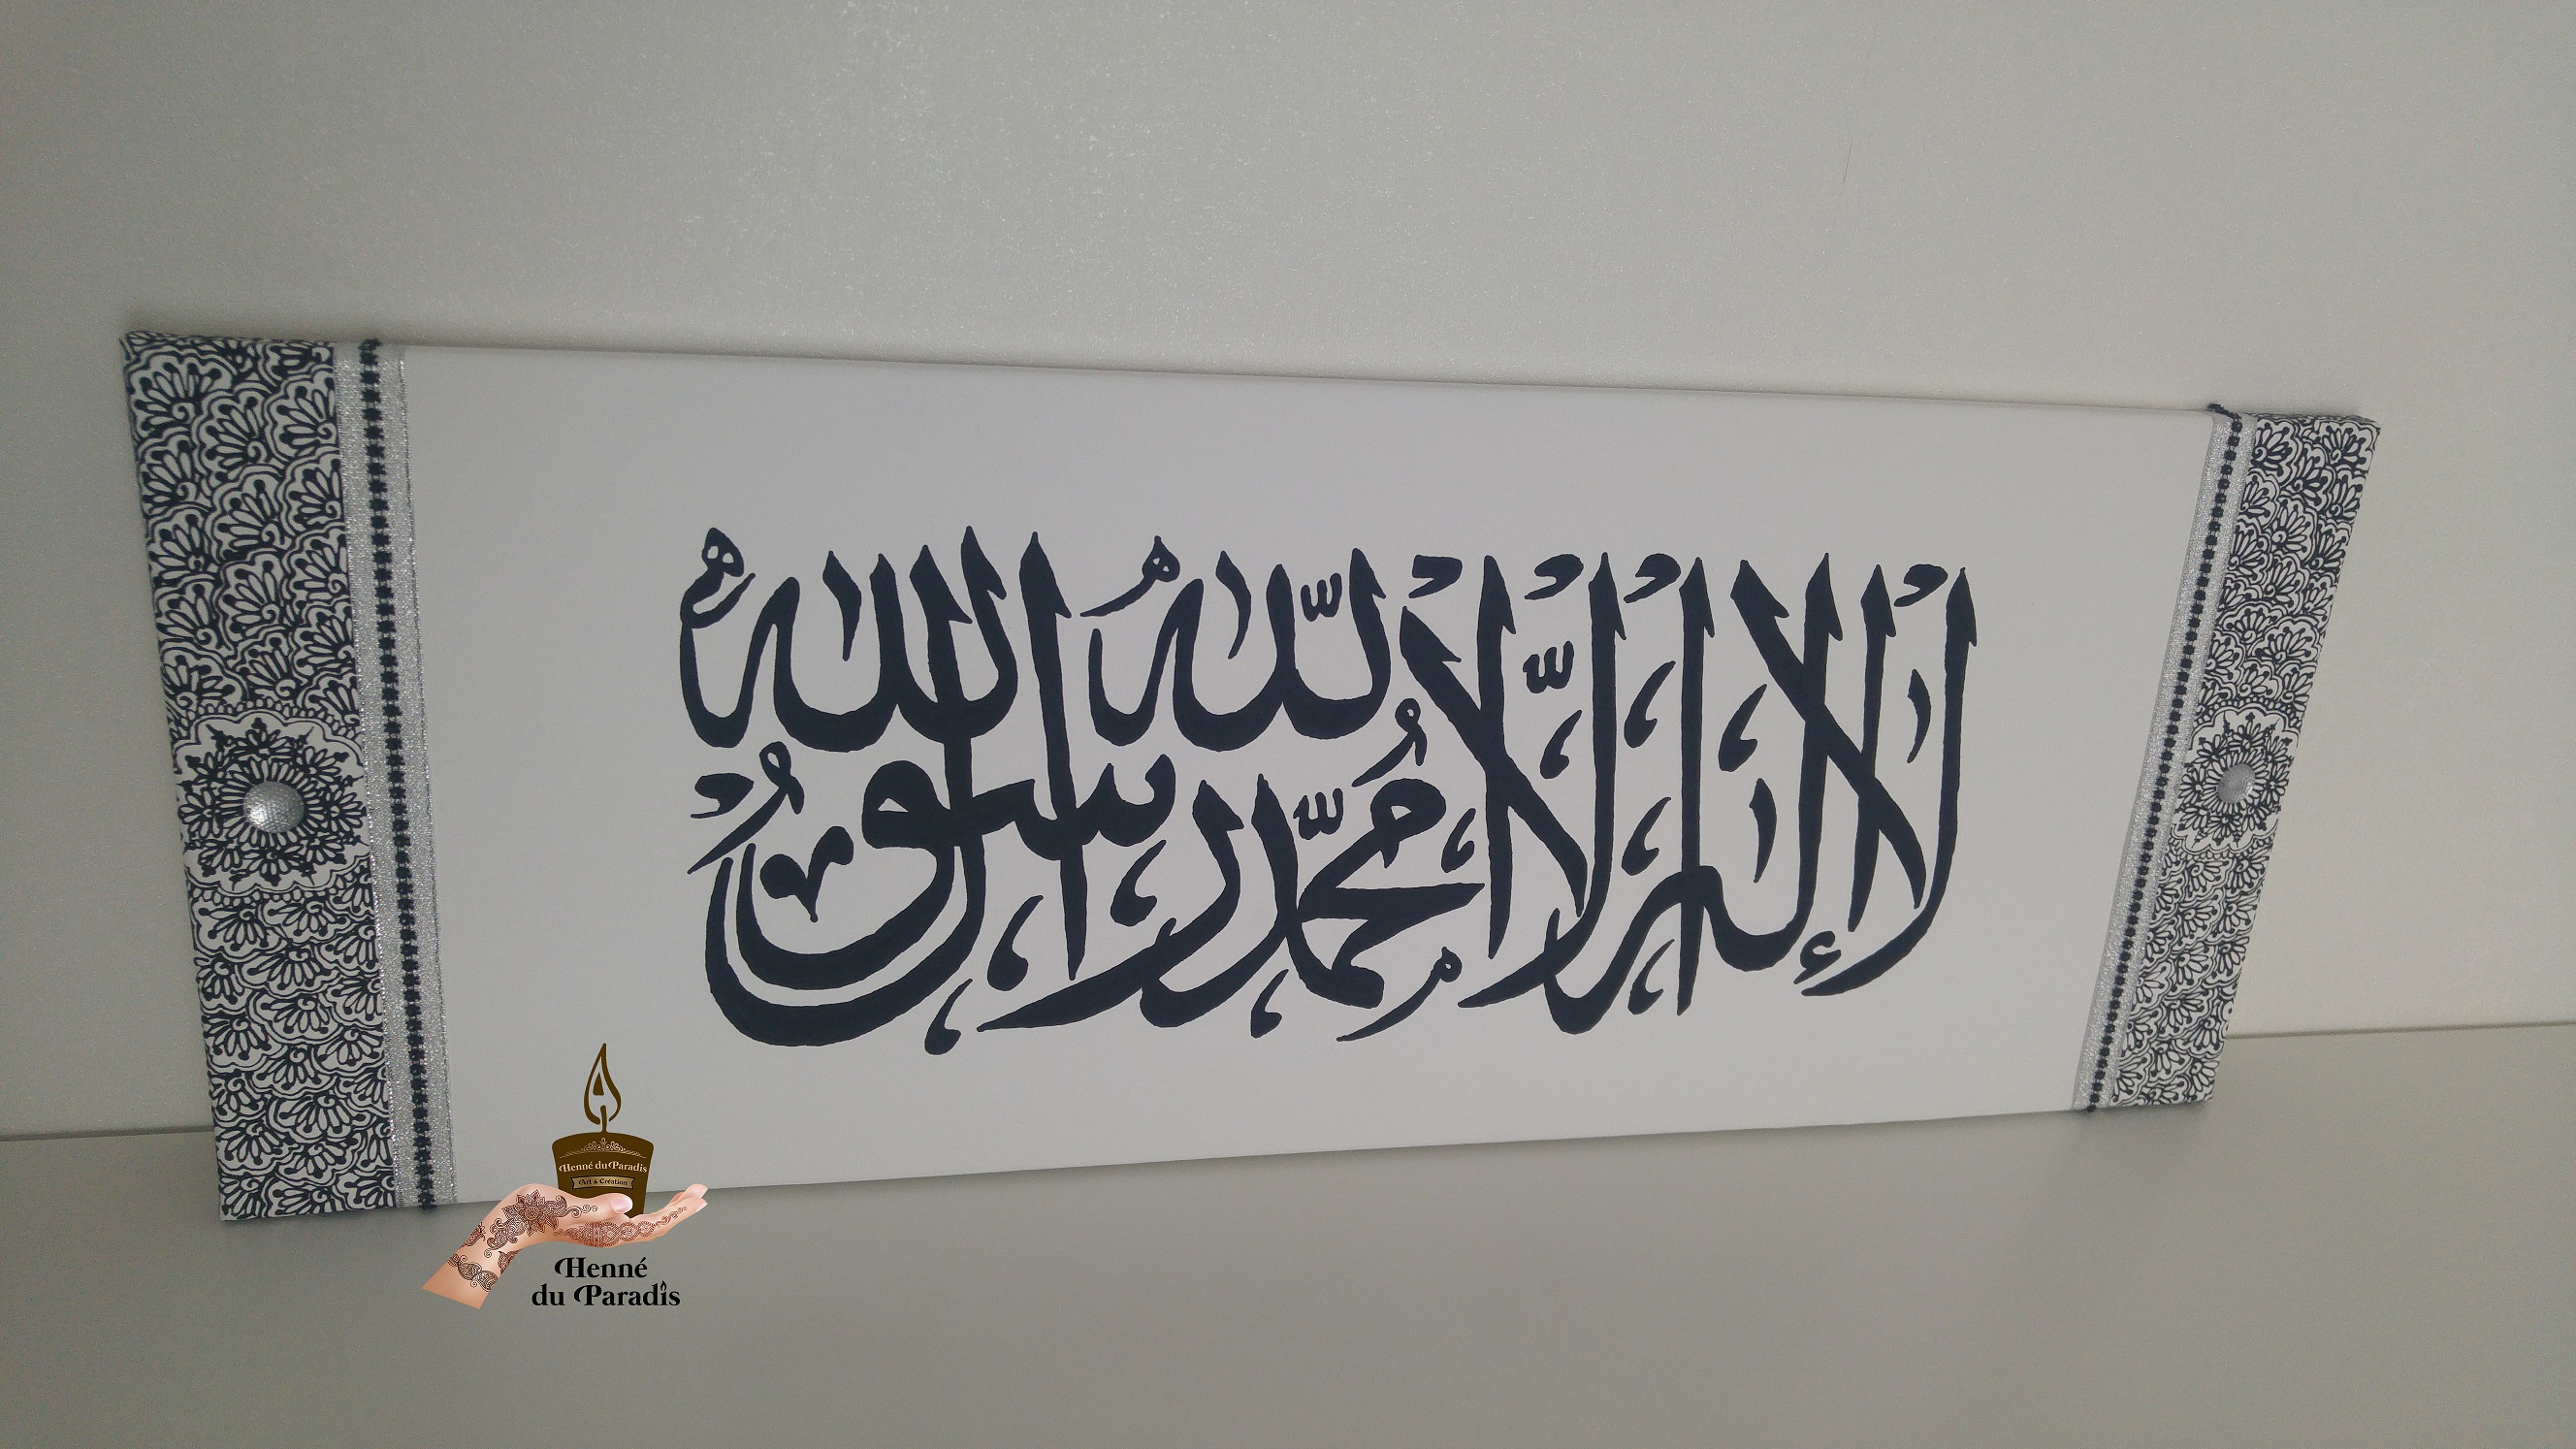 لا إله إلا الله محمد رسول الله
Henné du Paradis
Art & Création
Henné
du Paradis